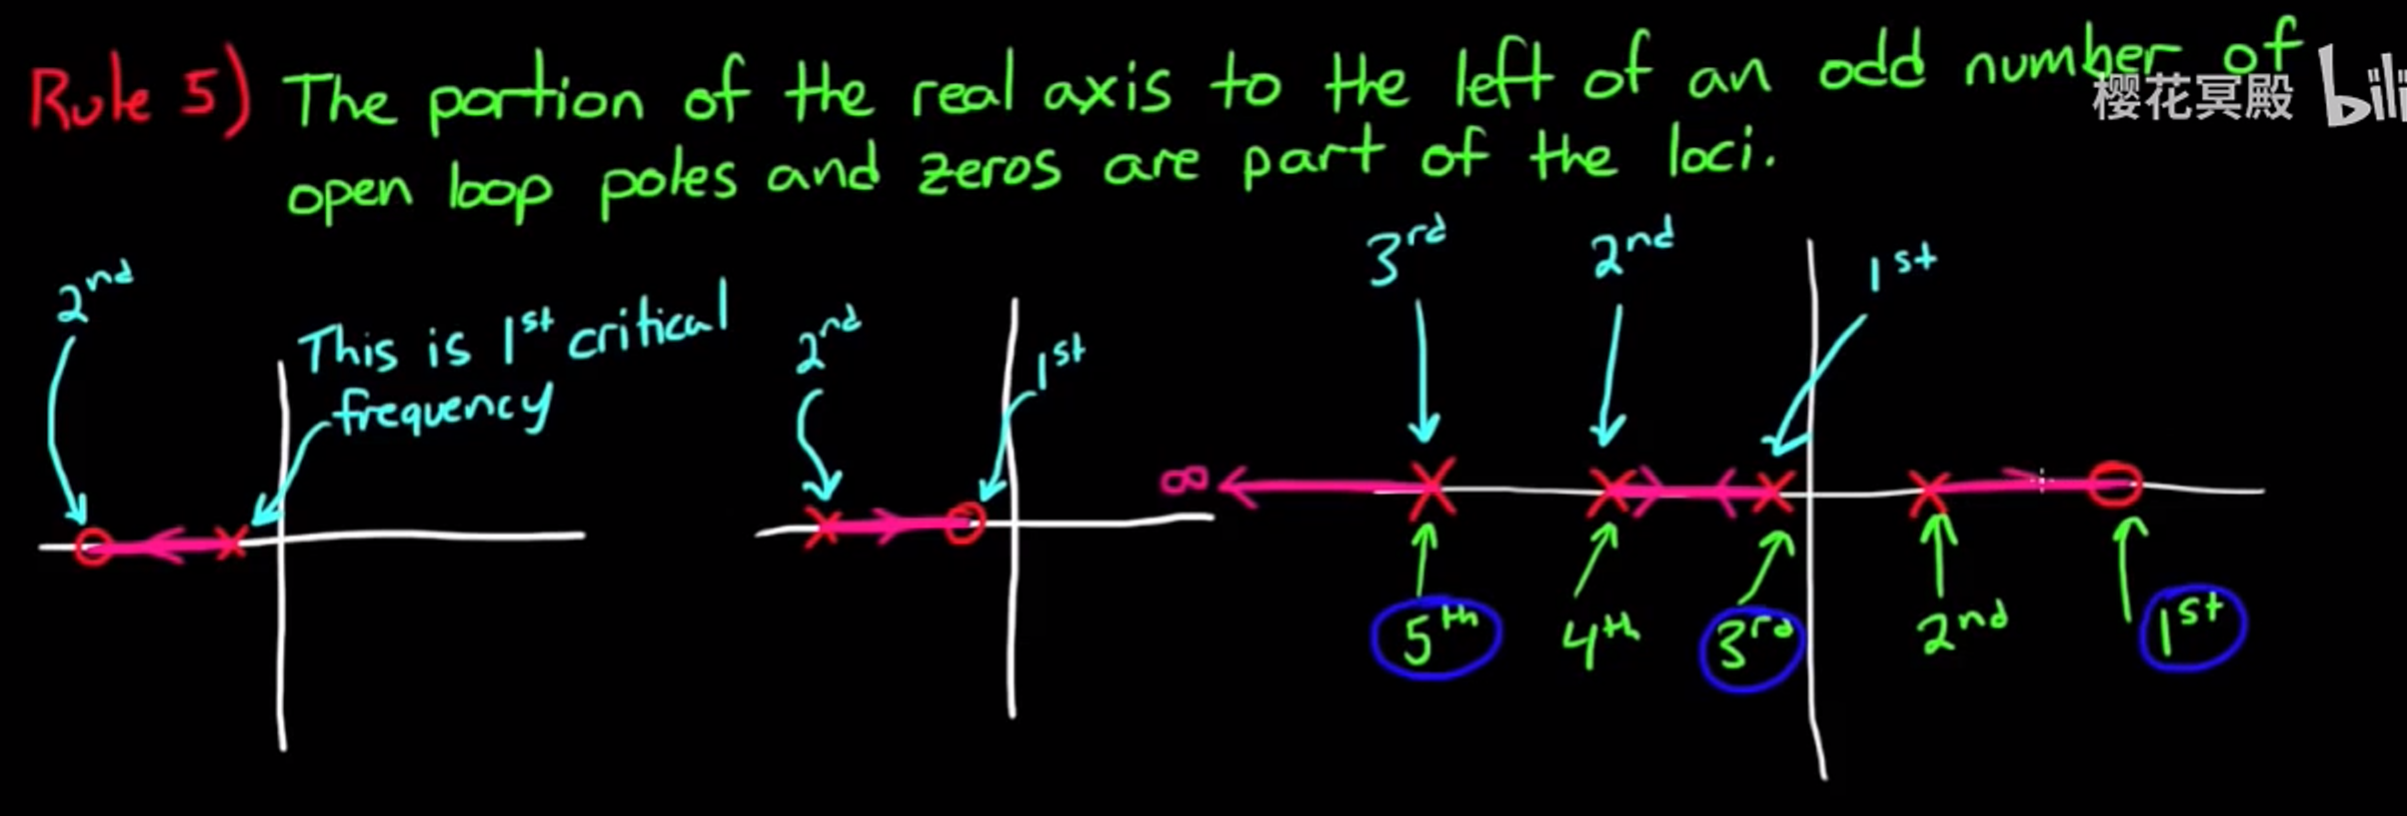 Rule 5) The portion of the real axis to the left of an odd number of
open loop poles and zeros are part of the loci.
樱花冥殿 bili
2nd
This is 1st critical
frequency
2nd
1st
3rd
2nd
1st
∞
5th
4th
3rd
2nd
1st